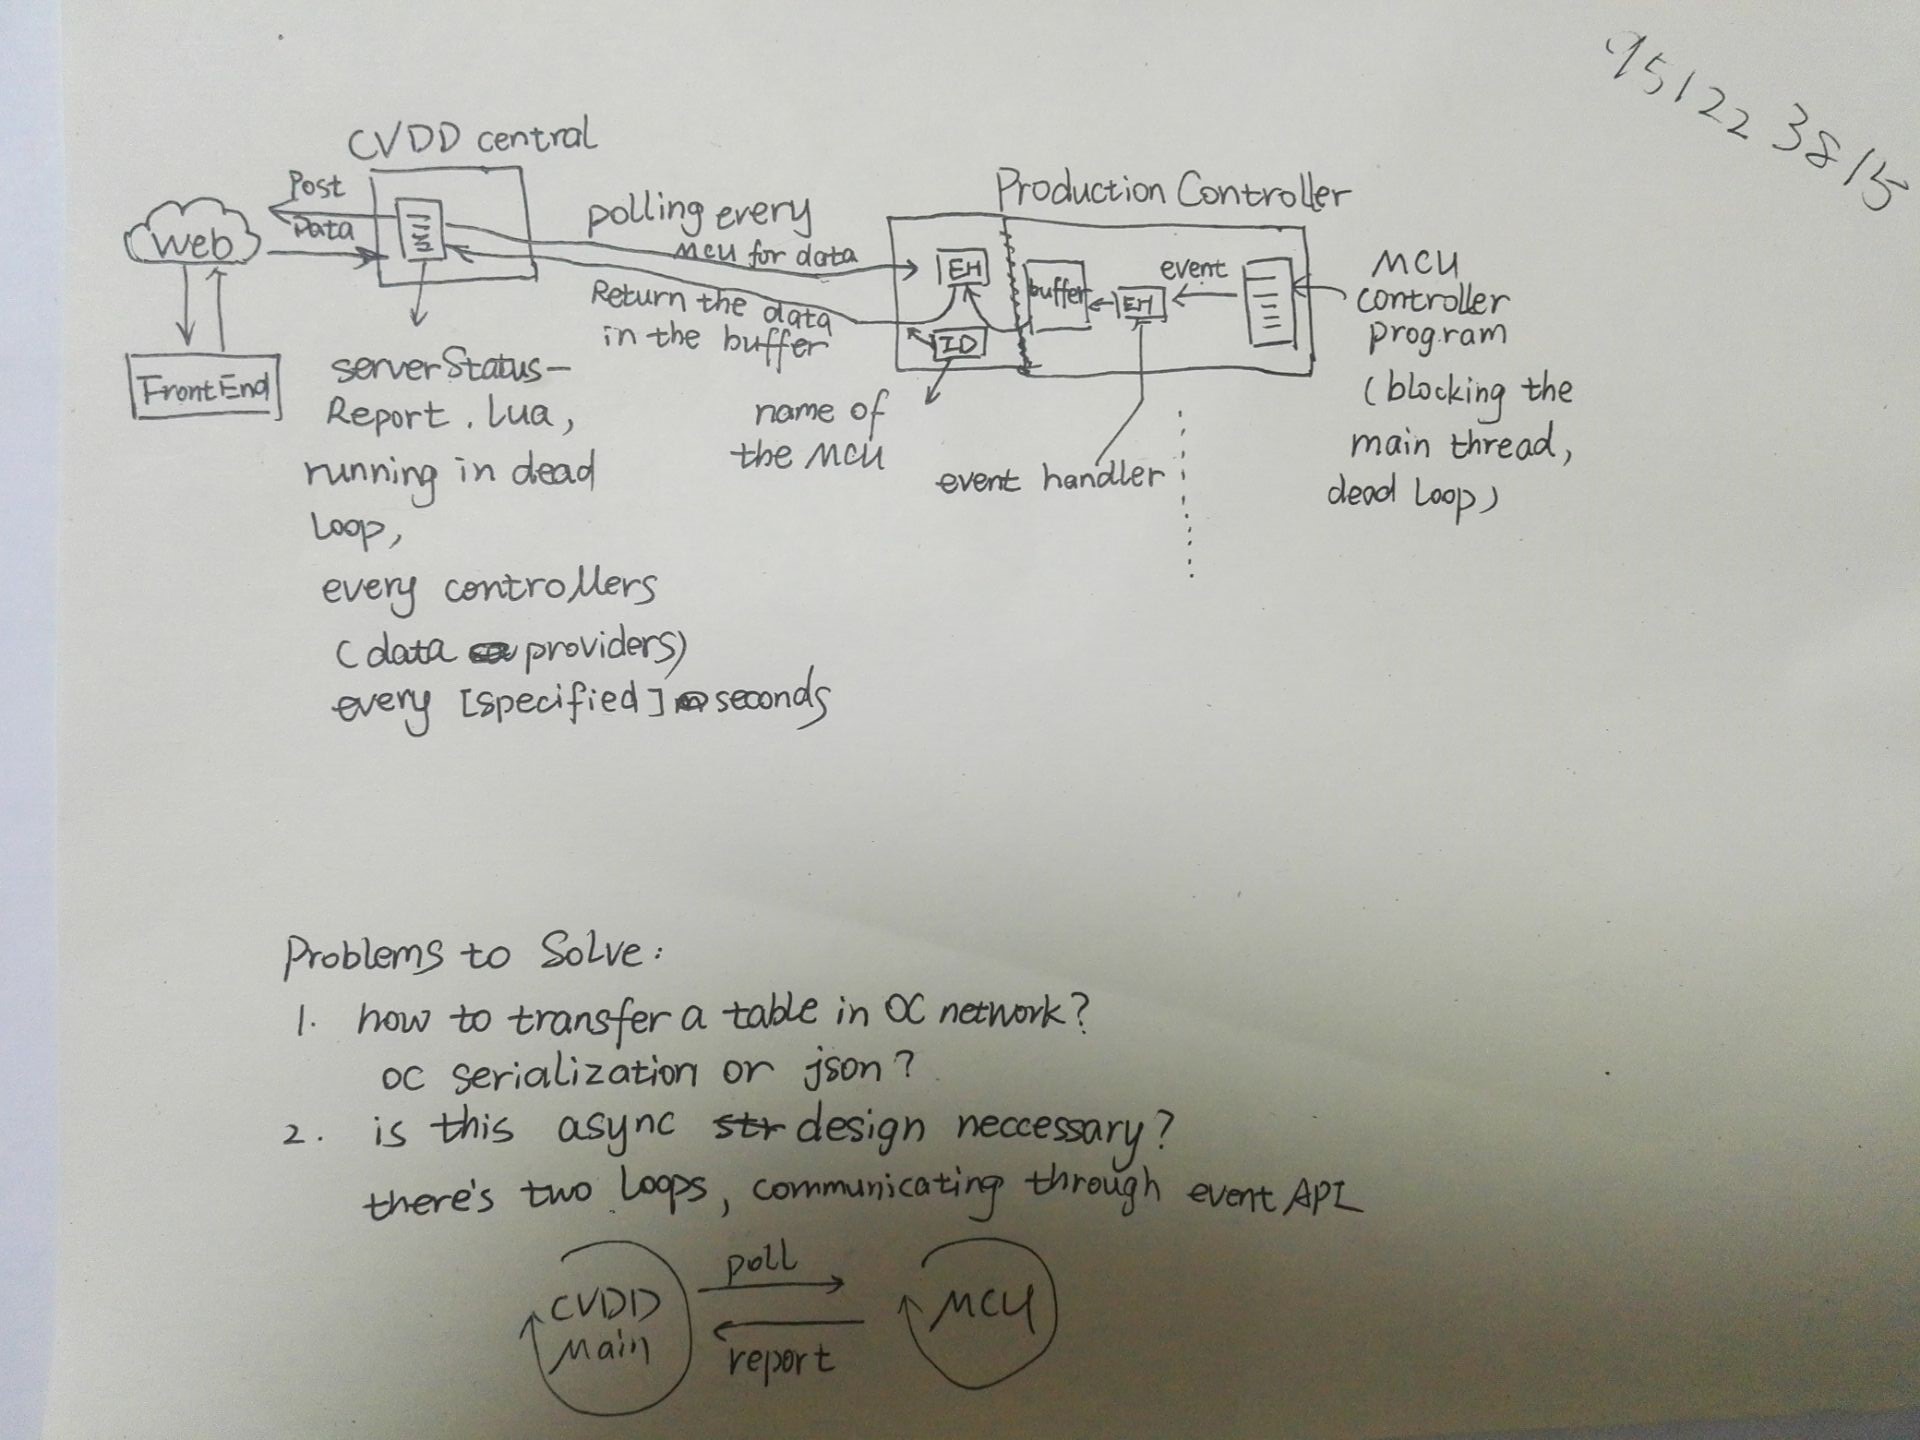 95122 3815
CVDD central
Post
Data
Web
FrontEnd
serverStatus-
Report.lua,
running in dead
loop,
every controllers
(data providers)
every [specified] seconds
polling every
MCU for data
Return the data
in the buffer
Production Controller
EH
ID
buffer
EH
event
name of
the MCU
event handler
MCU
controller
program
(blocking the
main thread,
dead loop)
Problems to Solve:
1. how to transfer a table in OC network?
OC serialization or json?
2. is this async str design neccessary?
there's two loops, communicating through event API
CVDD
Main
poll
report
MCU